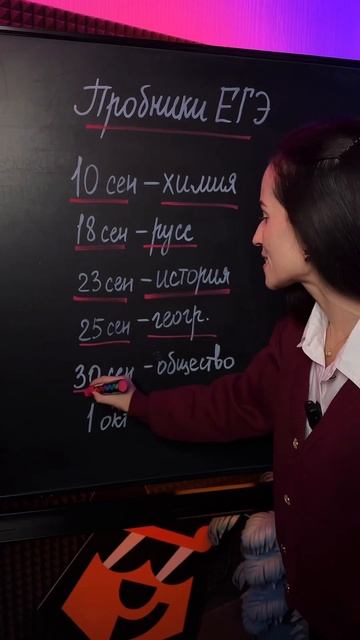 Пробники ЕГЭ
10 сен – химия
18 сен – русс
23 сен – история
25 сен – геогр.
30 сен – общество
1 окт